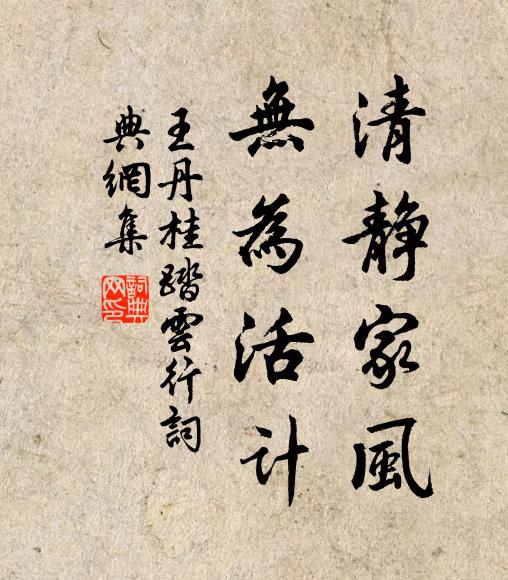 清靜家風
無為活计
王丹桂踏雲行詞
典網集
詞典網印